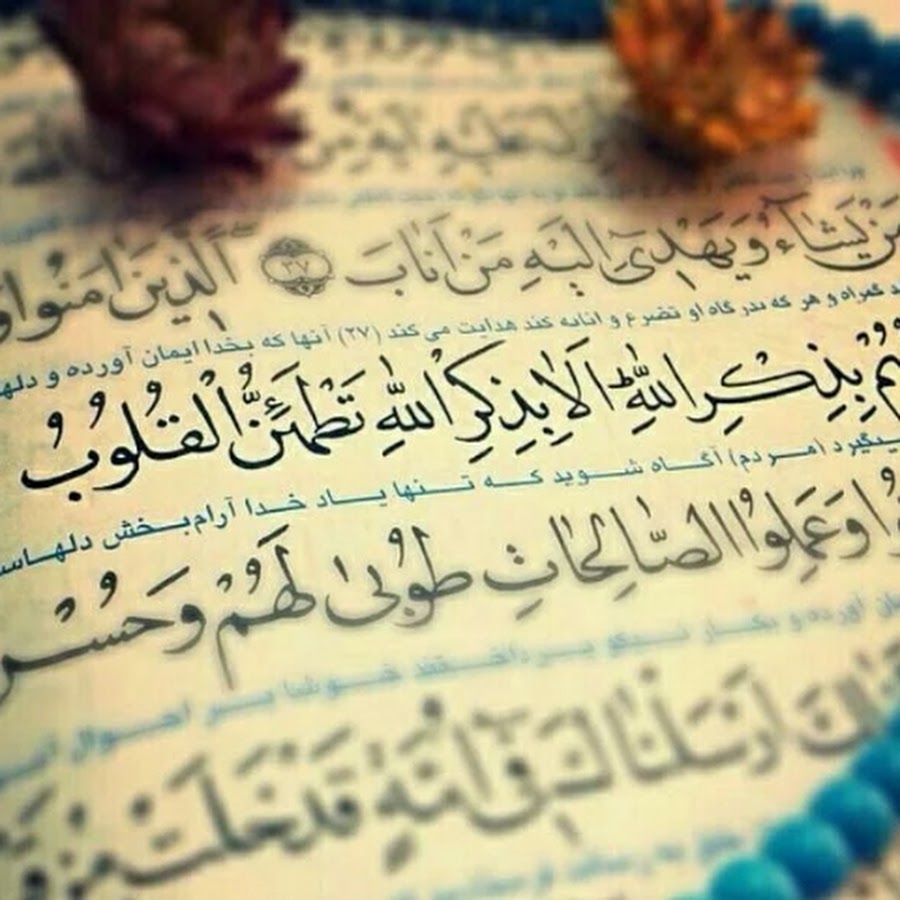 مَنْ يَشَاءُ وَيَهْدِي إِلَيْهِ مَنْ أَنَابَ ﴿٢٧﴾ الَّذِينَ آمَنُوا وَ
گمراه و هر که بدرگاه او تضرع و انابه کند هدایت می‌کند (۲۷) آنها که بخدا ایمان آورده و دلها
بِذِكْرِ اللَّهِ أَلَا بِذِكْرِ اللَّهِ تَطْمَئِنُّ الْقُلُوبُ
میگیرد (مردم) آگاه شوید که تنها یاد خدا آرام‌بخش دلهاست
وَعَمِلُوا الصَّالِحَاتِ طُوبَىٰ لَهُمْ وَحُسْنُ
آورده و بکار نیکو پرداختند خوشا بر احوال
أَرْسَلْنَاكَ فِي أُمَّةٍ قَدْ خَلَتْ مِنْ